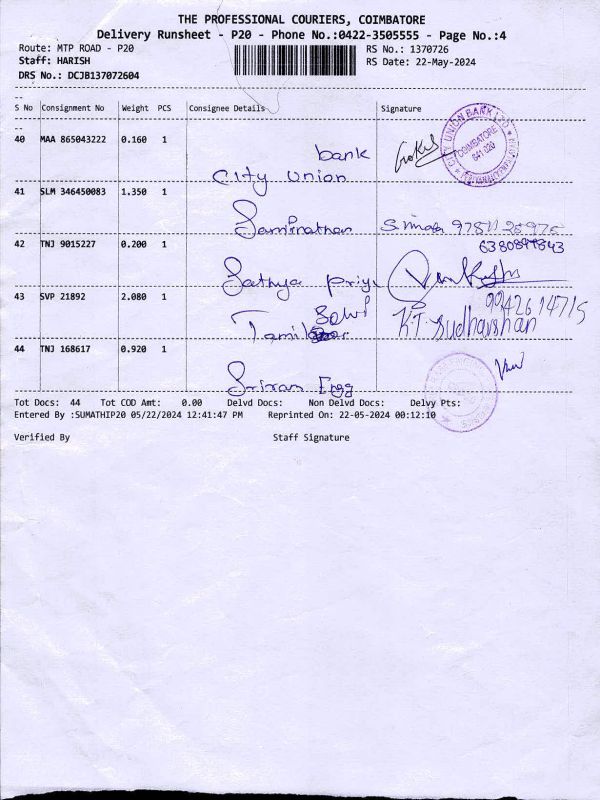 THE PROFESSIONAL COURIERS, COIMBATORE
Delivery Runsheet - P20 - Phone No.:0422-3505555 - Page No.:4
Route: MTP ROAD - P20
RS No.: 1370726
Staff: HARISH
RS Date: 22-May-2024
DRS No.: DCJB137072604
S No Consignment No Weight PCS Consignee Details Signature
40 MAA 865043222 0.160 1
bank
City Union
CITY UNION BANK LTD
COIMBATORE
641 020
41 SLM 346450083 1.350 1
Saminathan
42 TNJ 9015227 0.200 1
Sathya Priya
43 SVP 21892 2.080 1
Selvi
Tamil
9942614715
K.T. Sudharshan
44 TNJ 168617 0.920 1
Sriram Engg
Tot Docs: 44 Tot COD Amt: 0.00 Delvd Docs: Non Delvd Docs: Delvy Pts:
Entered By :SUMATHIP20 05/22/2024 12:41:47 PM Reprinted On: 22-05-2024 00:12:10
Verified By Staff Signature